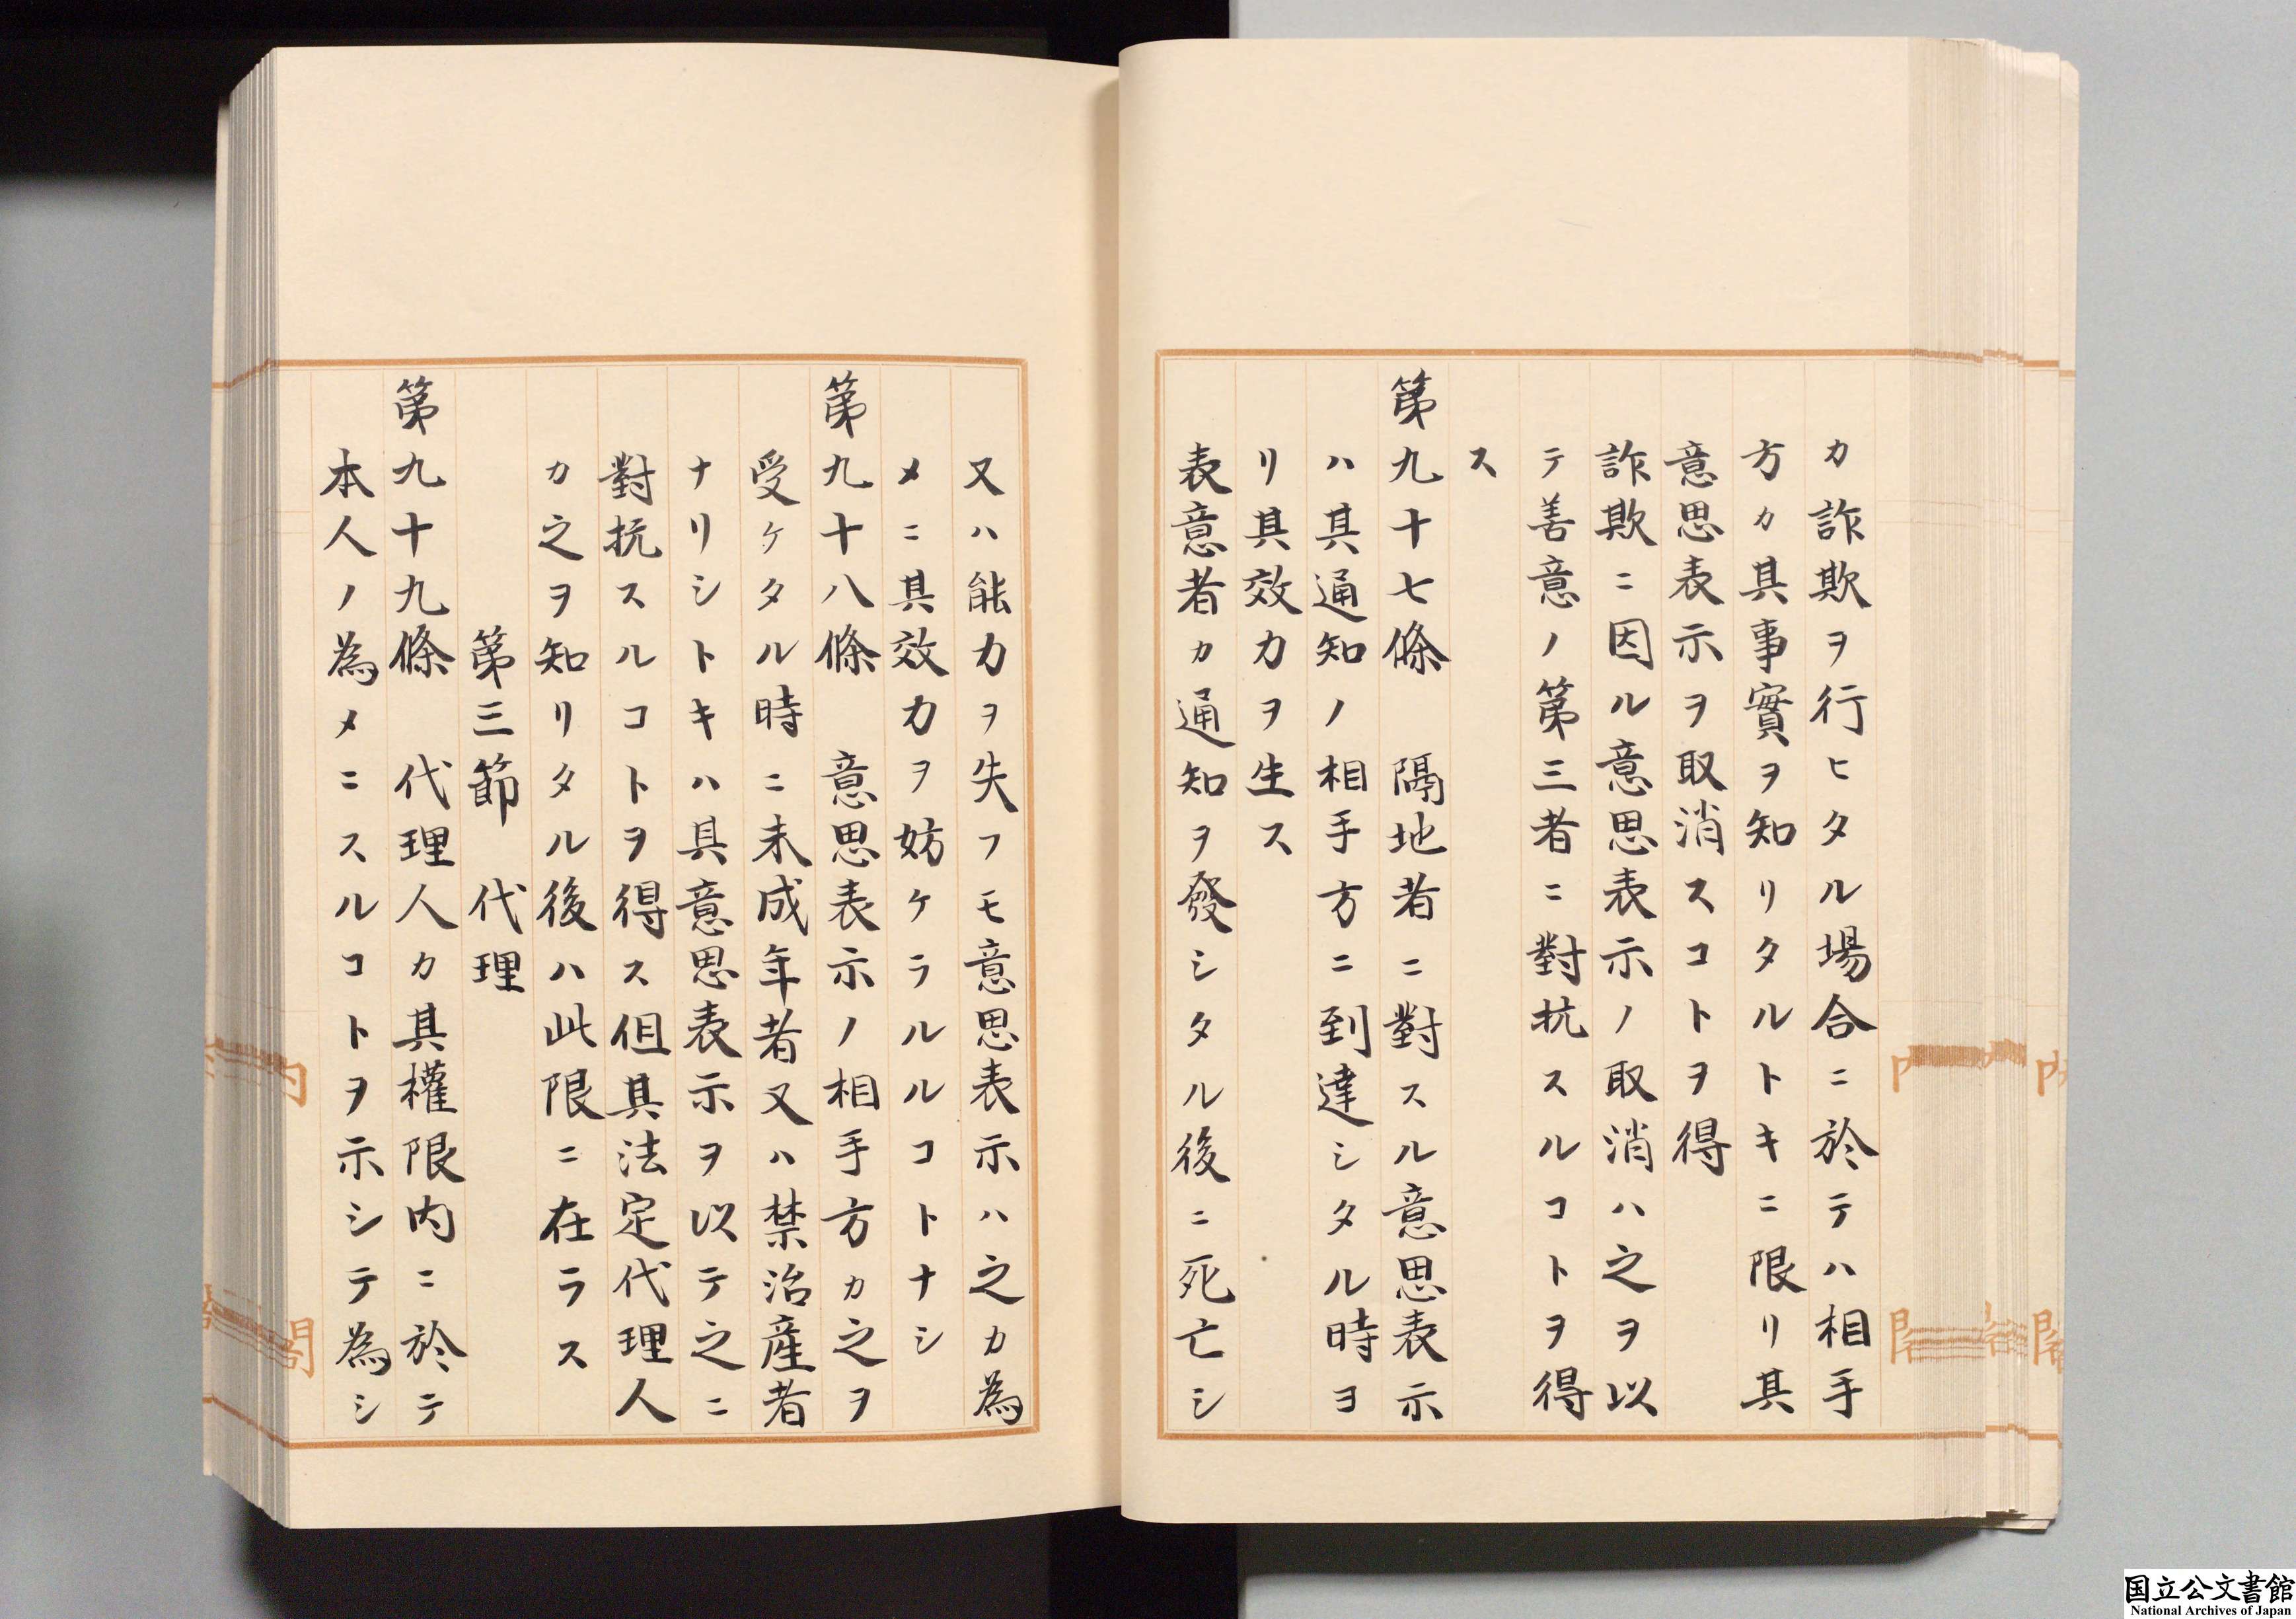 カ詐欺ヲ行ヒタル場合ニ於テハ相手
方カ其事實ヲ知リタルトキニ限リ其
意思表示ヲ取消スコトヲ得
詐欺ニ因ル意思表示ノ取消ハ之ヲ以
テ善意ノ第三者ニ對抗スルコトヲ得
ス
第九十七條　隔地者ニ對スル意思表示
ハ其通知ノ相手方ニ到達シタル時ヨ
リ其效力ヲ生ス
表意者カ通知ヲ發シタル後ニ死亡シ
又ハ能力ヲ失フモ意思表示ハ之カ為
メニ其效力ヲ妨ケラルルコトナシ
第九十八條　意思表示ノ相手方カ之ヲ
受ケタル時ニ未成年者又ハ禁治產者
ナリシトキハ其意思表示ヲ以テ之ニ
對抗スルコトヲ得ス但其法定代理人
カ之ヲ知リタル後ハ此限ニ在ラス
第三節　代理
第九十九條　代理人カ其權限内ニ於テ
本人ノ為メニスルコトヲ示シテ為シ
内
閣
国立公文書館
National Archives of Japan